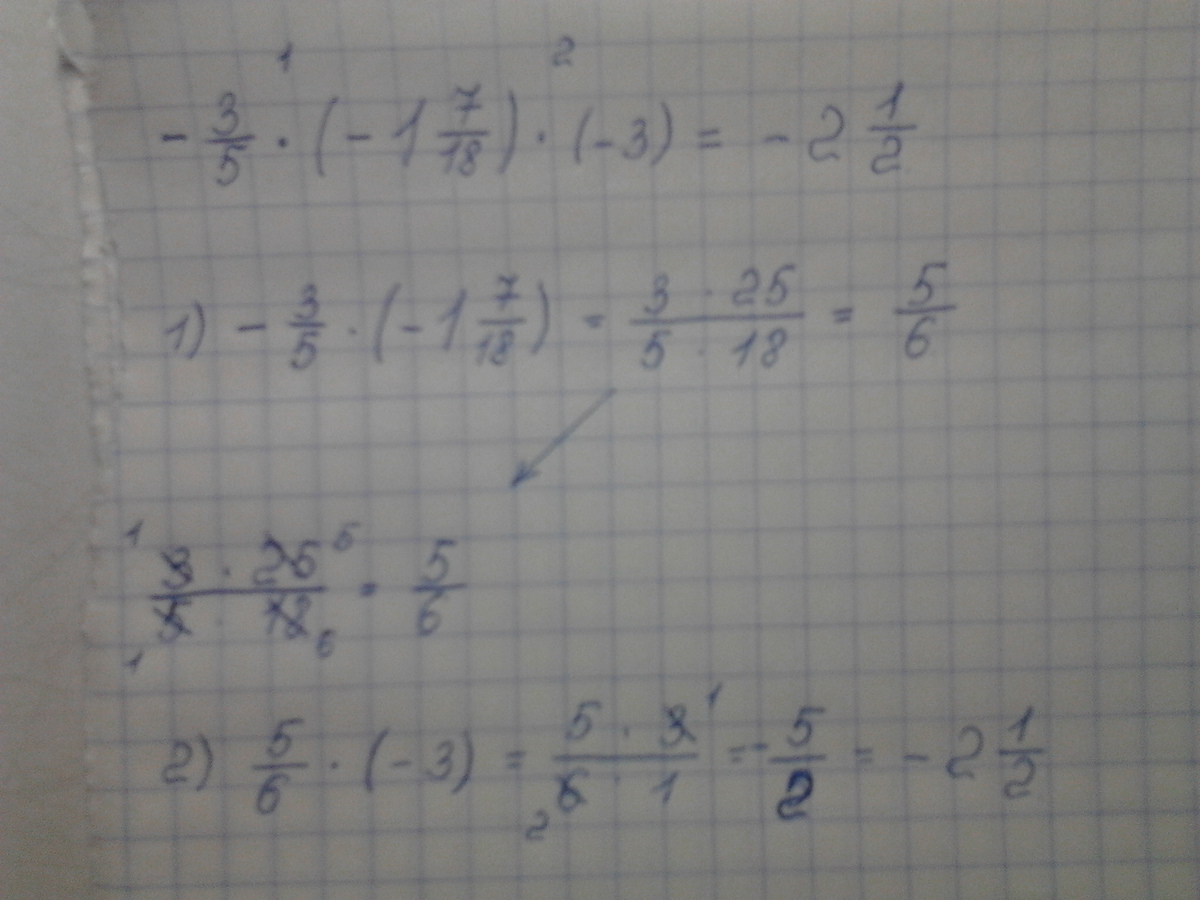 1 2
- 3/5 · (- 1 7/18) · (-3) = - 2 1/2
1) - 3/5 · (- 1 7/18) = 3 · 25 / 5 · 18 = 5/6
1 3 · 25 5 / 1 5 · 18 6 = 5/6
2) 5/6 · (- 3) = 5 · 3 1 / 2 6 · 1 = - 5/2 = - 2 1/2